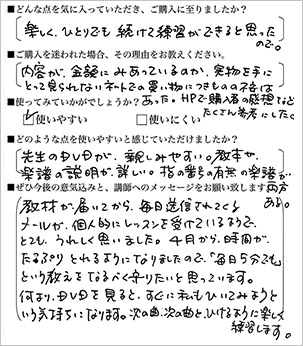 ■どんな点を気に入っていただき、ご購入に至りましたか？
楽しく、ひとりでも続けて練習ができると思った
ので。
■ご購入を迷われた場合、その理由をお教えください。
内容が、金額にみあっているのか、実物を手に
とって見られないネットでの買い物につきものの不安は
あった。HPで購入者の感想など
たくさん参考にした
■使ってみていかがでしょうか？
☑使いやすい □使いにくい
■どのような点を使いやすいと感じていただけましたか？
先生のDVDが、親しみやすい。教本や
楽譜の説明が、詳しい。指の番号の有無の楽譜が
両方
ある。
■ぜひ今後の意気込みと、講師へのメッセージをお願い致します
教材が届いてから、毎日送信されてくる
メールが、個人的にレッスンを受けているようで、
とても、うれしく思いました。4月から、時間が、
たっぷりとれるようになりましたので、「毎日5分でも」
という教えをなるべく守りたいと思っています。
何より、DVDを見ると、すぐに私もひいてみようと
いう気持ちになります。次の曲、次の曲と、ひけるように楽しく
練習します。